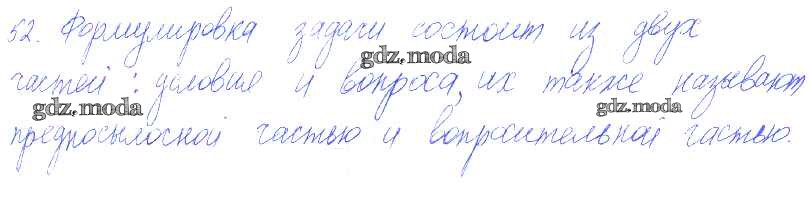 52. Формулировка задачи состоит из двух
gdz.moda
частей: условие и вопроса, их также называют
gdz.moda
gdz.moda
предпосылосной частью и вопросительной частью.